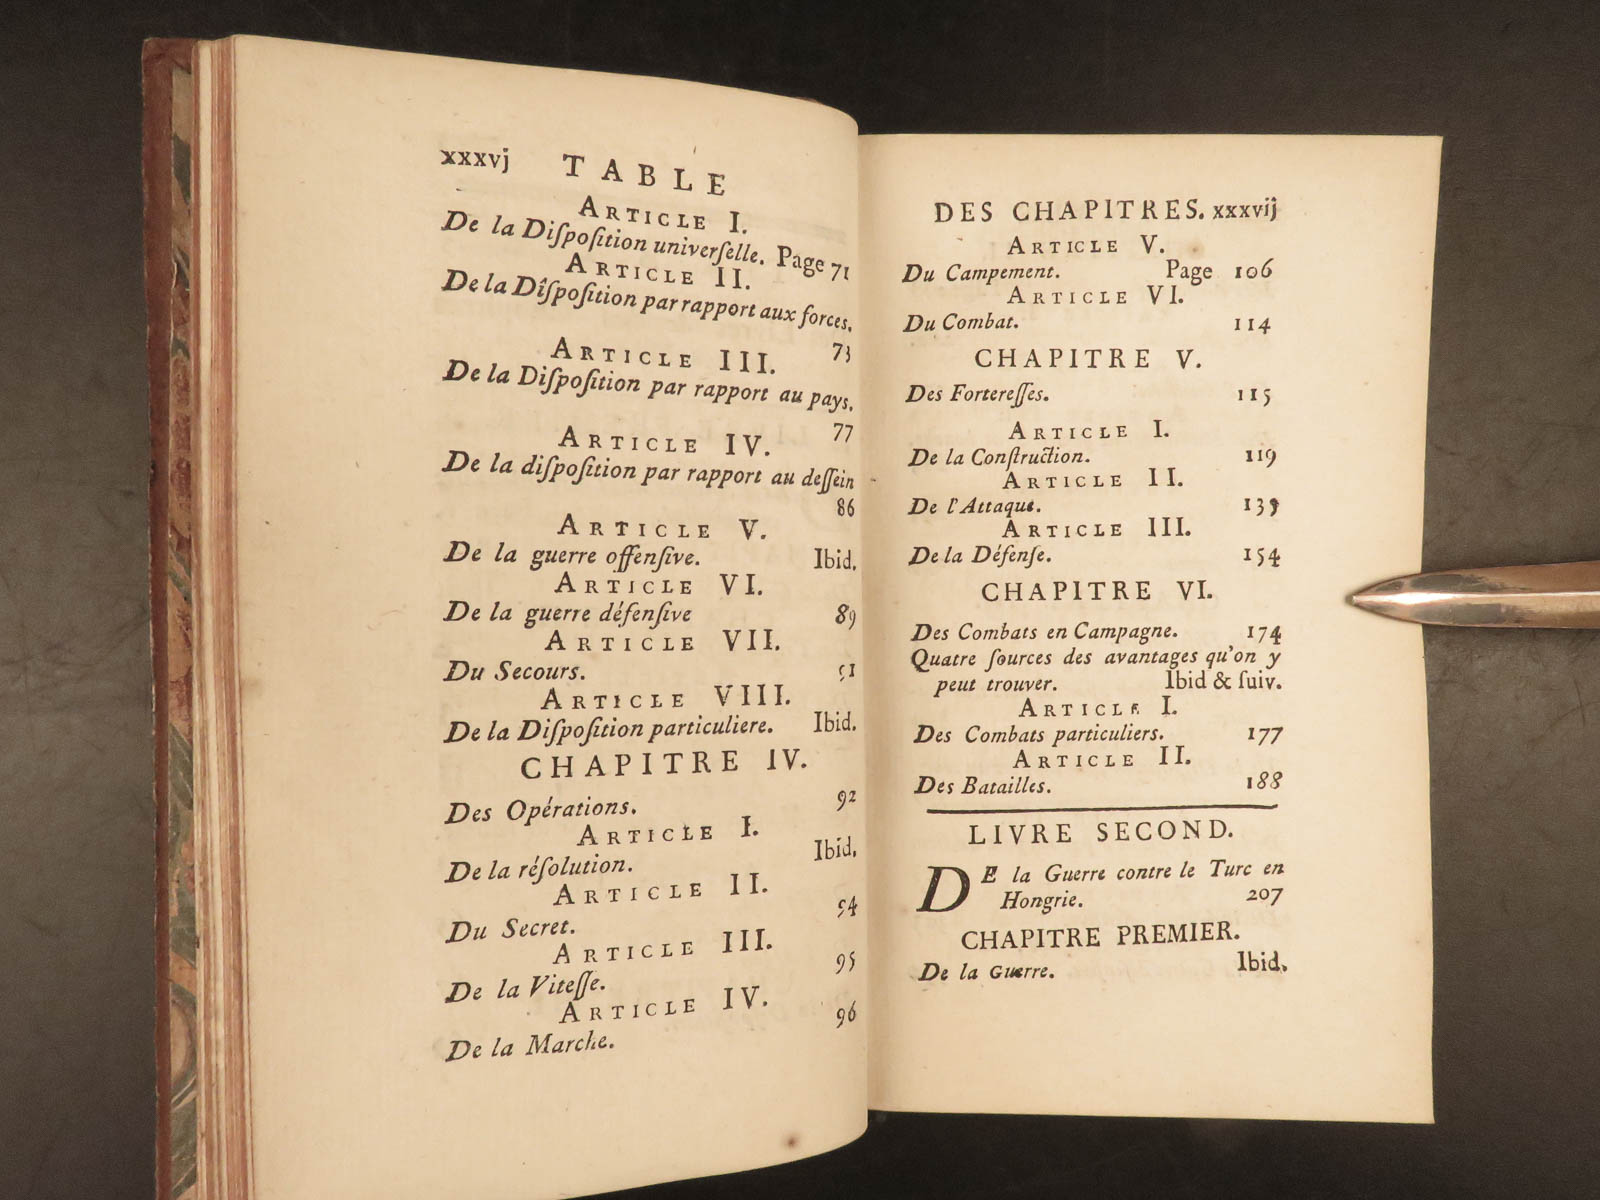 xxxvj TABLE
ARTICLE I.
De la Diſpoſition univerſelle. Page 71
ARTICLE II.
De la Dîſpoſition par rapport aux forces.
73
ARTICLE III.
De la Diſpoſition par rapport au pays.
77
ARTICLE IV.
De la diſpoſition par rapport au deſſein
86
ARTICLE V.
De la guerre offenſive. Ibid.
ARTICLE VI.
De la guerre défenſive 89
ARTICLE VII.
Du Secours. 91
ARTICLE VIII.
De la Diſpoſition particuliere. Ibid.
CHAPITRE IV.
Des Opérations. 92
ARTICLE I.
De la réſolution. Ibid.
ARTICLE II.
Du Secret. 94
ARTICLE III.
De la Viteſſe. 95
ARTICLE IV.
De la Marche. 96
DES CHAPITRES. xxxvij
ARTICLE V.
Du Campement. Page 106
ARTICLE VI.
Du Combat. 114
CHAPITRE V.
Des Fortereſſes. 115
ARTICLE I.
De la Conſtruction. 119
ARTICLE II.
De l'Attaque. 139
ARTICLE III.
De la Défenſe. 154
CHAPITRE VI.
Des Combats en Campagne. 174
Quatre ſources des avantages qu'on y
peut trouver. Ibid & ſuiv.
ARTICLE I.
Des Combats particuliers. 177
ARTICLE II.
Des Batailles. 188
LIVRE SECOND.
DE la Guerre contre le Turc en
Hongrie. 207
CHAPITRE PREMIER.
De la Guerre. Ibid.